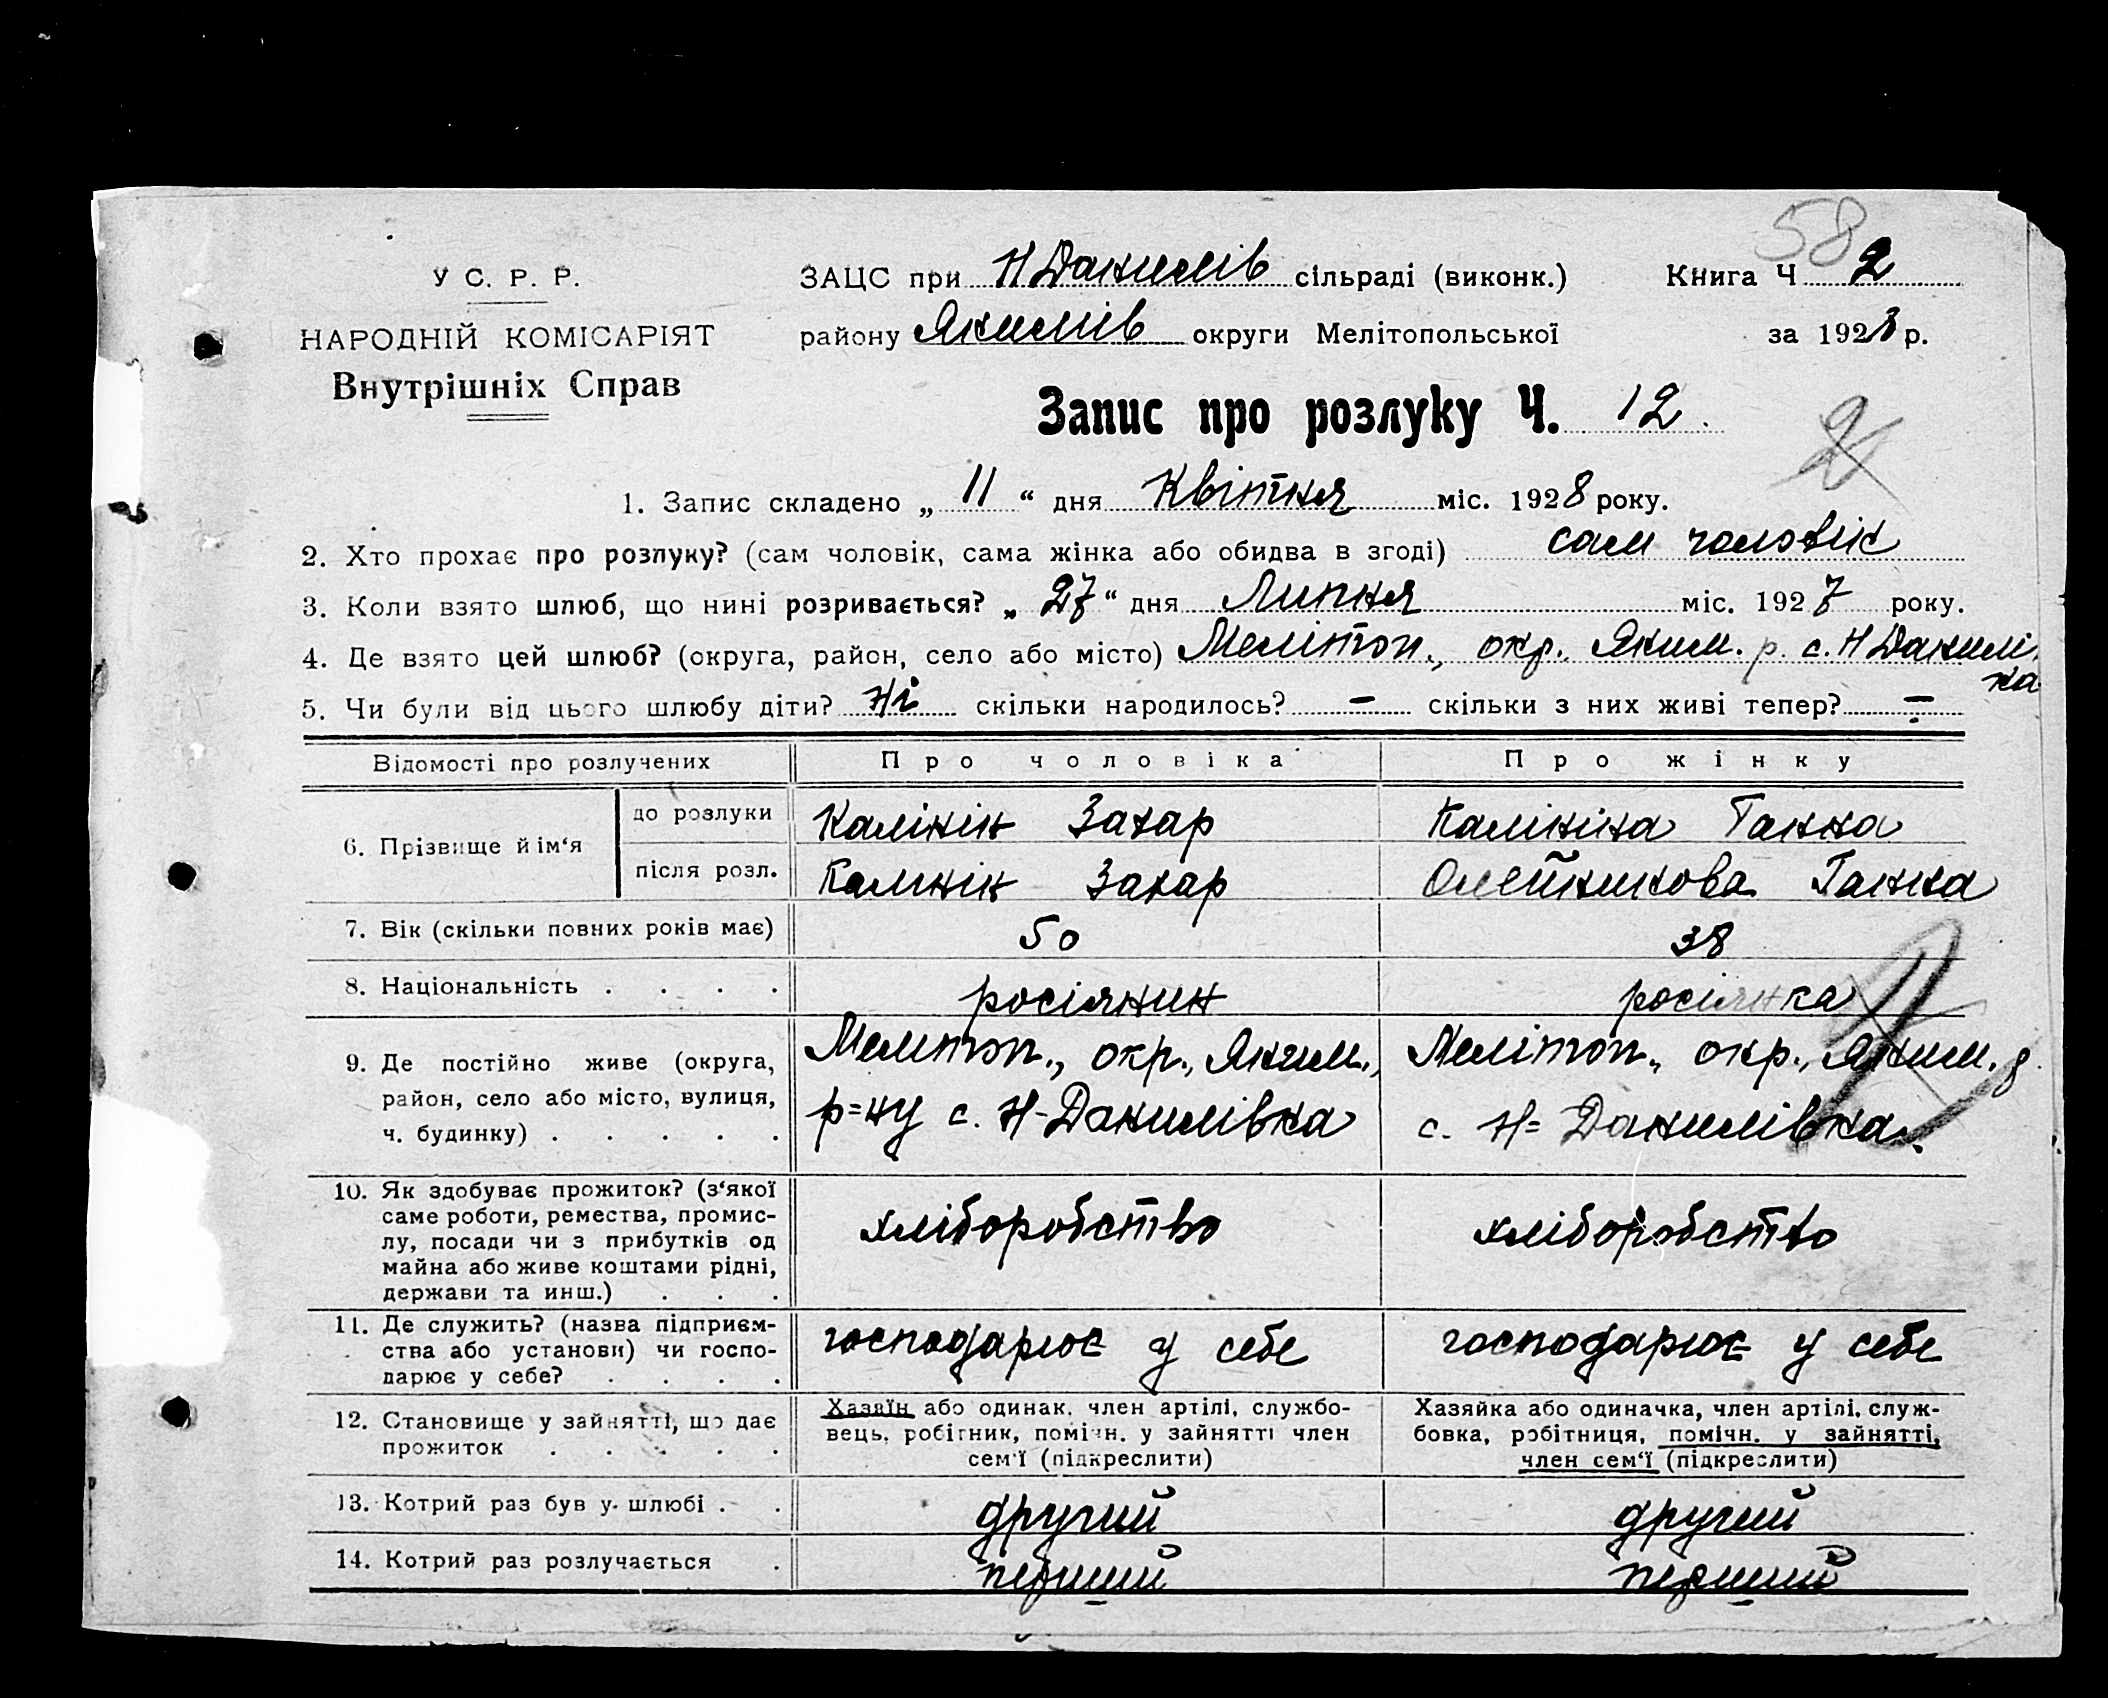 58
У С. Р. Р.
НАРОДНІЙ КОМІСАРІЯТ
Внутрішніх Справ
ЗАЦС при Н Данилів сільраді (виконк.)
Книга Ч 2
району Якимів округи Мелітопольської
за 1928 р.
Запис про розлуку Ч. 12.
2
1. Запис складено „ 11 “ дня Квітня міс. 1928 року.
2. Хто прохає про розлуку? (сам чоловік, сама жінка або обидва в згоді) сам чоловік
3. Коли взято шлюб, що нині розривається? „ 27 “ дня Липня міс. 1927 року.
4. Де взято цей шлюб? (округа, район, село або місто) Мелітоп., окр. Яким. р. с. Н Данилі.
ка
5. Чи були від цього шлюбу діти? Ні скільки народилось? — скільки з них живі тепер? —
Відомості про розлучених
Про чоловіка
Про жінку
6. Прізвище й ім‘я
до розлуки
Калінін Захар
Калініна Ганна
після розл.
Калінін Захар
Олейникова Ганна
7. Вік (скільки повних років має)
50
38
8. Національність . . . .
росіянин
росіянка
9. Де постійно живе (округа,
район, село або місто, вулиця,
ч. будинку) . . . . .
Мелітоп., окр., Яким.,
р=ну с. Н-Данилівка
Мелітоп., окр., Яким. р.
с. Н= Данилівка.
10. Як здобуває прожиток? (з‘якої
саме роботи, ремества, промис-
лу, посади чи з прибутків од
майна або живе коштами рідні,
держави та инш.) . . .
хліборобство
хліборобство
11. Де служить? (назва підприєм-
ства або установи) чи госпо-
дарює у себе? . . . .
господарює у себе
господарює у себе
12. Становище у зайнятті, що дає
прожиток . . . . .
Хазяїн або одинак, член артілі, службо-
вець, робітник, помічн. у зайнятті член
сем‘ї (підкреслити)
Хазяйка або одиначка, член артілі, служ-
бовка, робітниця, помічн. у зайнятті,
член сем‘ї (підкреслити)
13. Котрий раз був у шлюбі . .
другий
другий
14. Котрий раз розлучається .
перший
перший